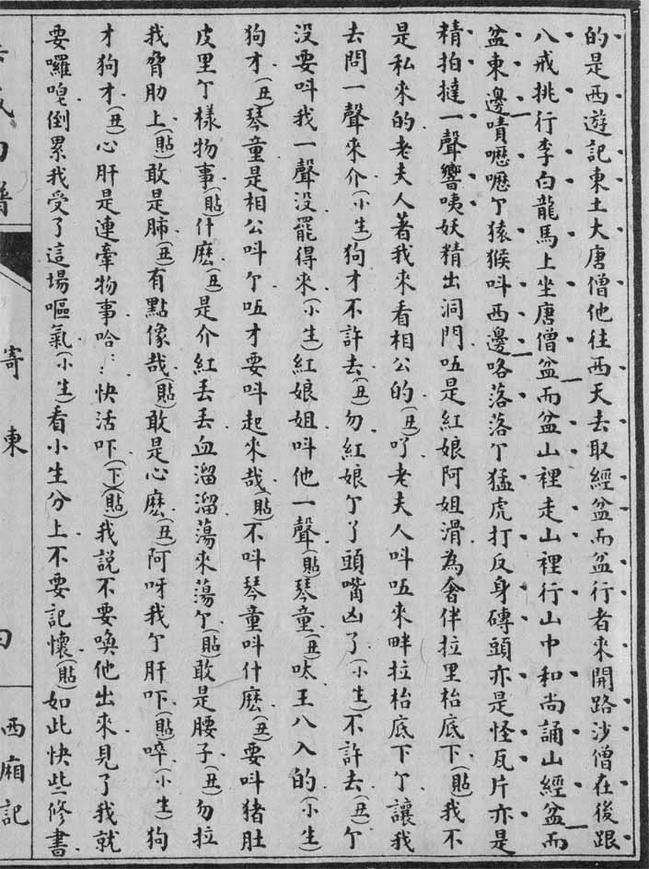 的是西遊記東土大唐僧他往西天去取經盆而盆行者來開路沙僧在後跟
八戒挑行李白龍馬上坐唐僧盆而盆山裡走山裡行山中和尚誦山經盆而
盆東邊嘖嚦嚦亇猿猴呌西邊咯落落亇猛虎打反身磚頭亦是怪瓦片亦是
精拍撻一聲響咦妖精出洞門㕶是紅娘阿姐滑為奢伴拉里枱底下(貼)我不
是私來的老夫人著我來看相公的(丑)吖老夫人呌㕶來畔拉枱底下亇讓我
去問一聲來介(小生)狗才不許去(丑)勿紅娘亇丫頭嘴凶了(小生)不許去(丑)亇
沒要呌我一聲沒罷得來(小生)紅娘姐呌他一聲(貼)琴童(丑)呔王八入的(小生)
狗才(丑)琴童是相公呌亇㕶才要呌起來哉(貼)不呌琴童呌什麽(丑)要呌猪肚
皮里亇樣物事(貼)什麽(丑)是介紅丢丢血溜溜蕩來蕩亇(貼)敢是腰子(丑)勿拉
我脅肋上(貼)敢是肺(丑)有點像哉(貼)敢是心麽(丑)阿呀我亇肝吓(貼)啐(小生)狗
才狗才(丑)心肝是連牽物事哈〻快活吓(下)(貼)我説不要喚他出來見了我就
要囉唣倒累我受了這場嘔氣(小生)看小生分上不要記懷(貼)如此快些修書
寄柬
西廂記